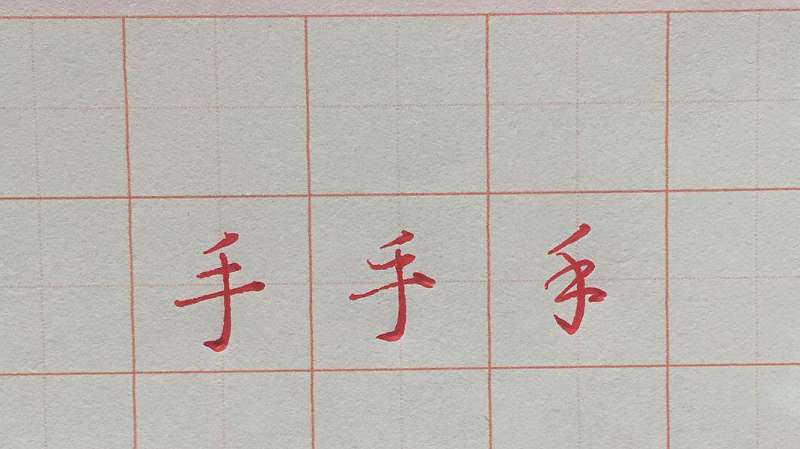 手手手